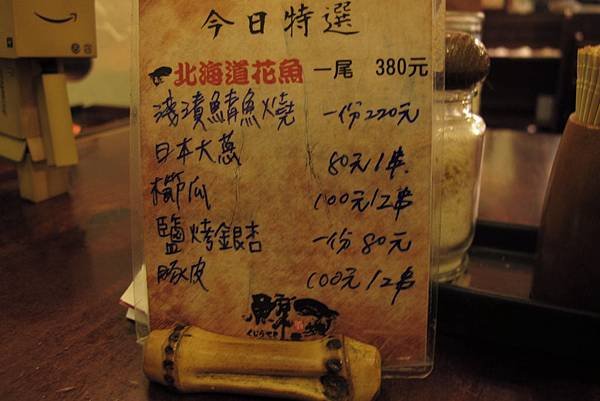 今日特選
北海道花魚 一尾 380元
淺漬鯖魚燒 一份220元
日本大蔥 80元/串
櫛瓜 100元/2串
鹽烤銀杏 一份80元
豚皮 100元/2串